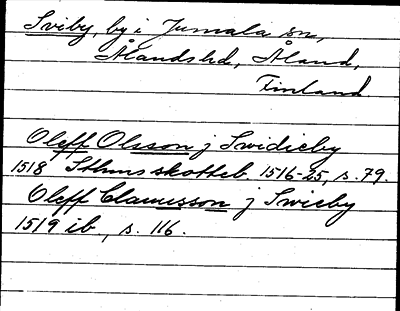 Sviby, by i Jumala sn,
Ålands hd, Åland,
Finland.
Oleff Olsson j Swidieby
1518 Sthms skotteb. 1516-25, s. 79.
Oleff Clamusson j Swieby
1519 ib., s. 116.